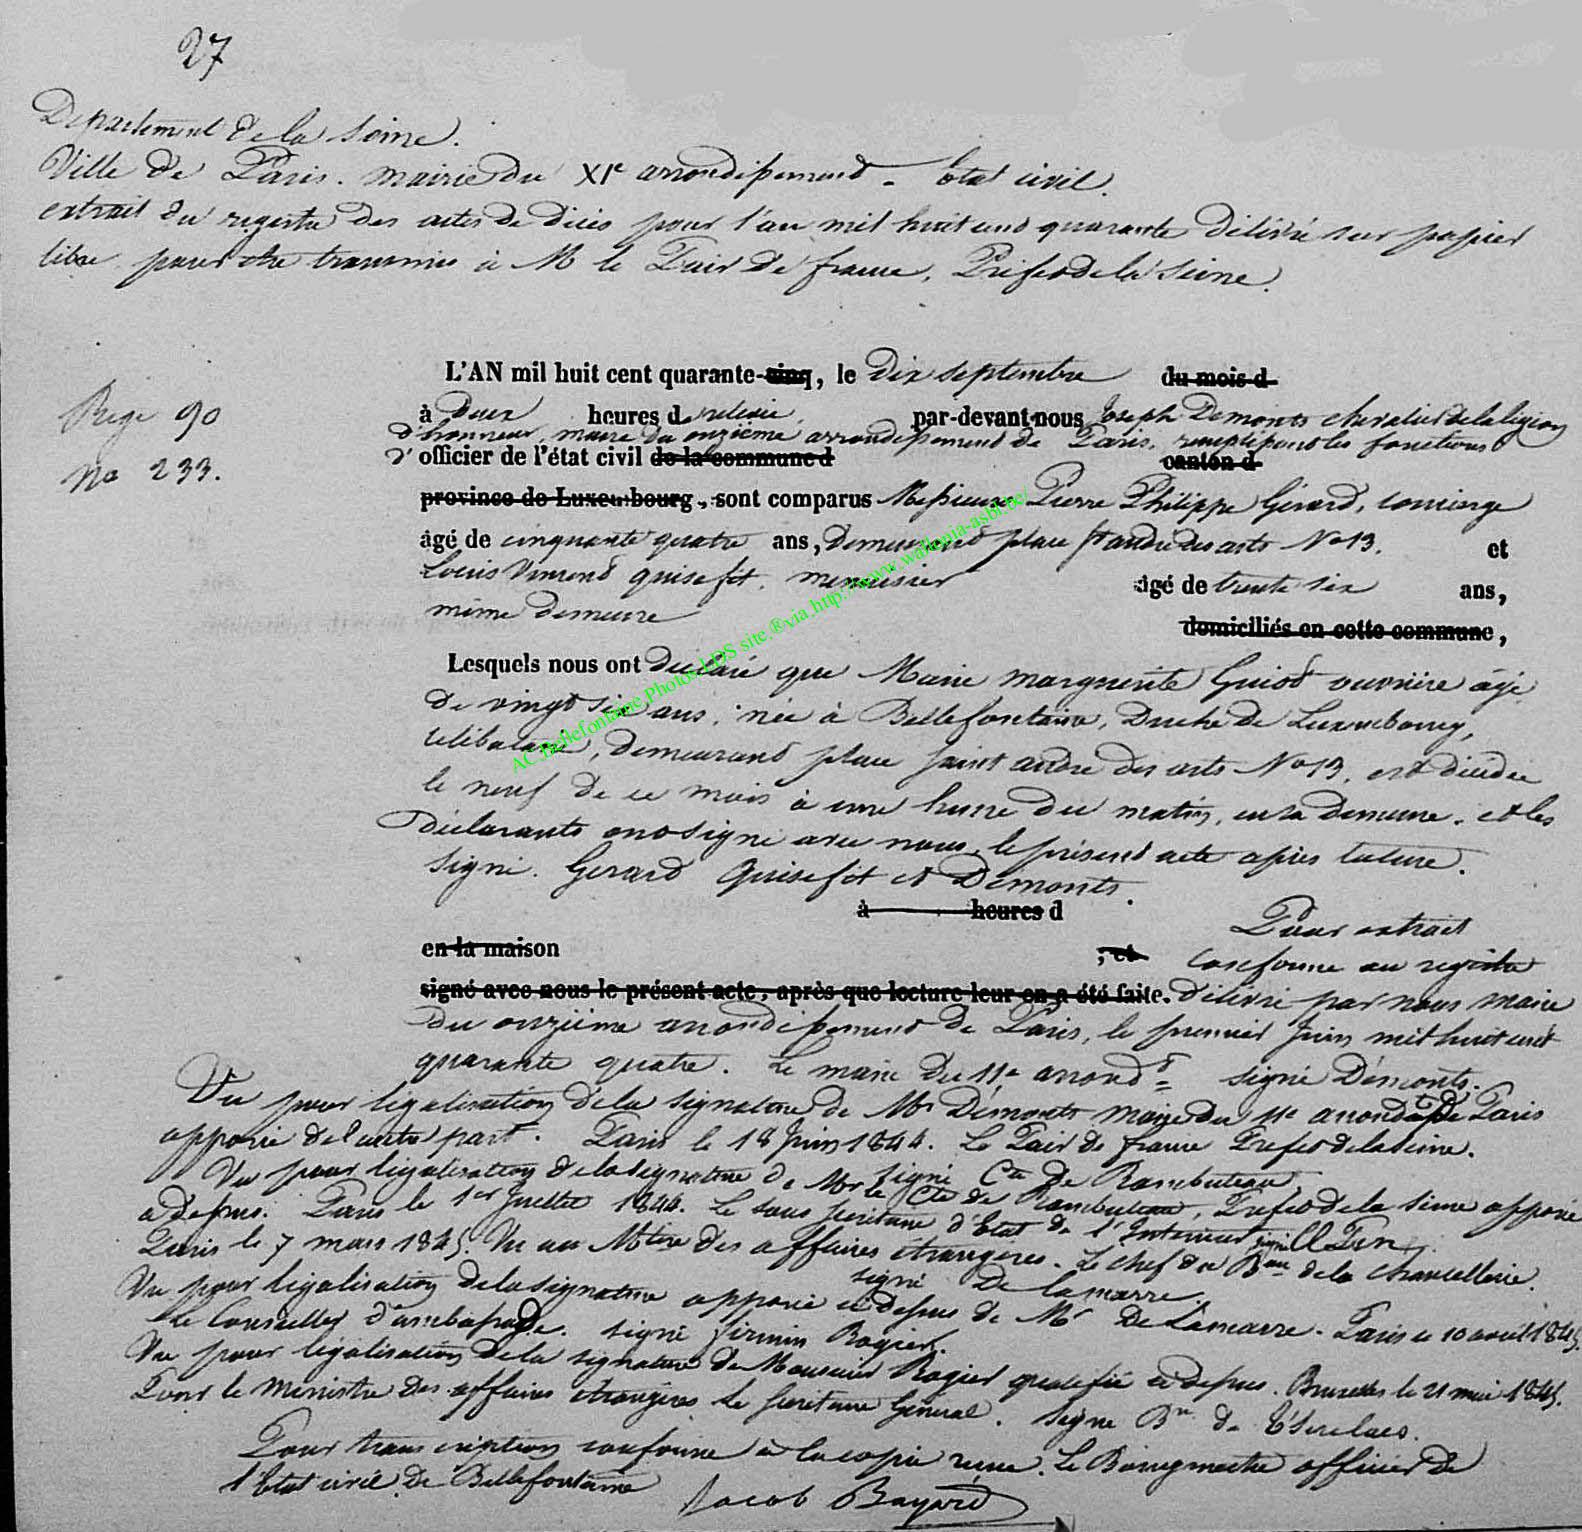 27
Departement de la Seine.
Ville de Paris. mairie du XIe arrondissement - Etat civil.
extrait du registre des actes de décès pour l'an mil huit cent quarante délivré sur papier
libre pour être transmis à M le Pair de france, Préfet de la Seine.
L'AN mil huit cent quarante-cinq, le Dix septembre du mois d
Rege 90
à Deux heures d relevée par-devant nous Joseph Démonts chevalier de la légion
d'honneur, maire du onzième arrondissement de Paris, remplissant les fonctions
No 233.
d'officier de l'état civil de la commune d canton d
province de Luxembourg, sont comparus Messieurs Pierre Philippe Gérard, concierge
âgé de cinquante quatre ans, demeurant place St andré des arts No 13. et
Louis Vincent Guisefit, menuisier âgé de trente six ans,
même demeure domiciliés en cette commune,
Lesquels nous ont déclaré que Marie marguerite Guiot ouvrière âgée
de vingt six ans, née à Bellefontaine, Duché de Luxembourg,
célibataire, demeurant place saint andré des arts No 13. est décédée
le neuf de ce mois à une heure du matin, en sa demeure. et les
déclarants ont signé avec nous le présent acte après lecture.
signé. Gerard Guisefit et Démonts.
à heures d
Pour extrait
en la maison ; et Conforme au registre
signé avec nous le présent acte, après que lecture leur en a été faite. délivré par nous maire
du onzième arrondissement de Paris, le premier Juin mil huit cent
quarante quatre. Le maire du 11e arrondt signé Démonts.
Vu pour légalisation de la signature de Mr Démonts maire du 11e arrondt de Paris
apposée de l'autre part. Paris le 18 Juin 1844. Le Pair de france Préfet de la Seine.
signé Cte De Rambuteau
Vu pour légalisation de la signature de Mr le Cte de Rambuteau, Préfet de la Seine apposée
ci dessus. Paris le 1er Juillet 1844. Le sous secrétaire d'Etat de l'Intérieur signé
Paris le 7 mars 1845. Vu au Mtère des affaires étrangères. Le chef du Bau de la chancellerie.
signé De Lamarre.
Vu pour légalisation de la signature apposée ci dessus de Mr De Lamarre. Paris le 10 avril 1845.
Le Conseiller d'ambassade. signé firmin Rogier.
Vu pour légalisation de la signature de Monsieur Rogier qualifié ci dessus. Bruxelles le 21 mai 1845.
Pour le Ministre des affaires étrangères Le secrétaire Général. signé Bn de T'Serclaes.
Pour transcription conforme à la copie reçue. Le Bourgmestre officier de
l'Etat civil de Bellefontaine Jacob Bayard
AC Bellefontaine Photos LDS site ® via http://www.wallonia-asbl.be/